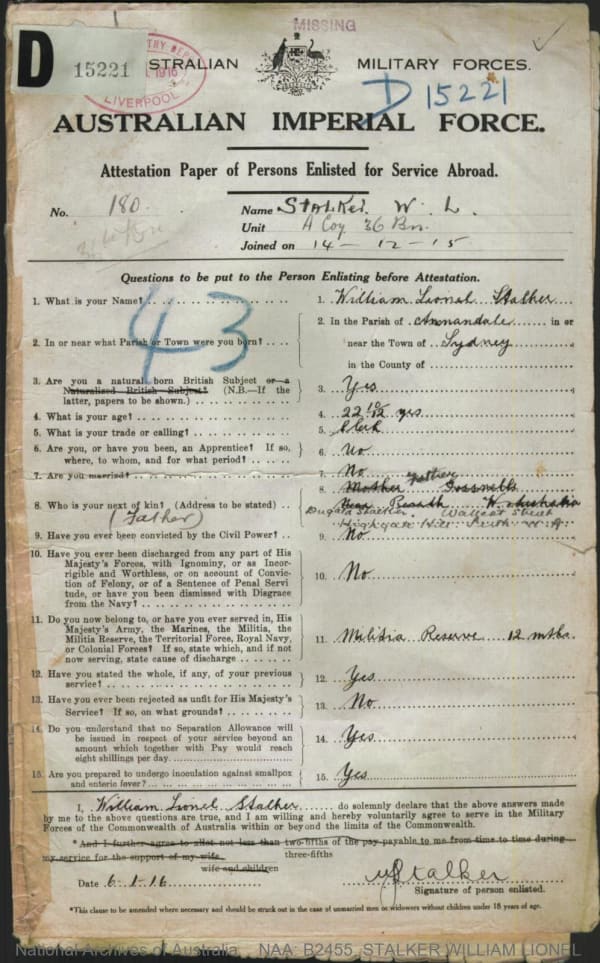 MISSING
D
15221
LIVERPOOL
STRALIAN MILITARY FORCES.
D 15221
AUSTRALIAN IMPERIAL FORCE.
Attestation Paper of Persons Enlisted for Service Abroad.
No. 180.
Name Stalker. W. L.
Unit A Coy 36 Bn.
Joined on 14 - 12 - 15
Questions to be put to the Person Enlisting before Attestation.
43
1. What is your Name? 1. William Lionel Stalker
2. In or near what Parish or Town were you born? 2. In the Parish of Annandale in or
near the Town of Sydney
in the County of
3. Are you a natural born British Subject or a
Naturalised British Subject? (N.B.—If the
latter, papers to be shown.) 3. Yes
4. What is your age? 4. 22 yrs
5. What is your trade or calling? 5. Clerk
6. Are you, or have you been, an Apprentice? If so,
where, to whom, and for what period? 6. No
7. Are you married? 7. No
8. Who is your next of kin? (Address to be stated) 8. Mother Father Gosnells
(Father) Near Perth W. Australia
Dugald Stalker. Walcott Street
Highgate Hill Perth W.A
9. Have you ever been convicted by the Civil Power? 9. No
10. Have you ever been discharged from any part of His
Majesty's Forces, with Ignominy, or as Incor-
rigible and Worthless, or on account of Convic-
tion of Felony, or of a Sentence of Penal Servi
tude, or have you been dismissed with Disgrace
from the Navy? 10. No
11. Do you now belong to, or have you ever served in, His
Majesty's Army, the Marines, the Militia, the
Militia Reserve, the Territorial Force, Royal Navy,
or Colonial Forces? If so, state which, and if not
now serving, state cause of discharge 11. Militia Reserve 12 mths.
12. Have you stated the whole, if any, of your previous
service? 12. Yes
13. Have you ever been rejected as unfit for His Majesty's
Service? If so, on what grounds? 13. No
14. Do you understand that no Separation Allowance will
be issued in respect of your service beyond an
amount which together with Pay would reach
eight shillings per day. 14. Yes
15. Are you prepared to undergo inoculation against smallpox
and enteric fever? 15. Yes
I, William Lionel Stalker do solemnly declare that the above answers made
by me to the above questions are true, and I am willing and hereby voluntarily agree to serve in the Military
Forces of the Commonwealth of Australia within or beyond the limits of the Commonwealth.
*And I further agree to allot not less than two-fifths of the pay payable to me from time to time during
three-fifths
my service for the support of my wife.
wife and children
Date 6.1.16 W Stalker
Signature of person enlisted.
*This clause to be amended where necessary and should be struck out in the case of unmarried men or widowers without children under 18 years of age.
National Archives of Australia NAA: B2455, STALKER WILLIAM LIONEL